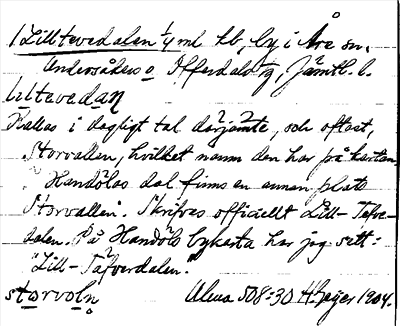 1 Lilltevedalen 1/4 mtl hb, by i Åre sn.
Undersåkers o. Offerdals tg, Jämtl. l.
lıltevedan
Kallas i dagligt tal därjämte, och oftast,
Storvallen, hvilket namn den har på kartan.
I Handölas dal finns en annan plats
"Storvallen". Skrifves officiellt Lill-Tefve-
dalen. På Handöls bykarta har jag sett:
"Lill-Täfverdalen."
storvoln
Alma 508:30 H. Geijer 1904.